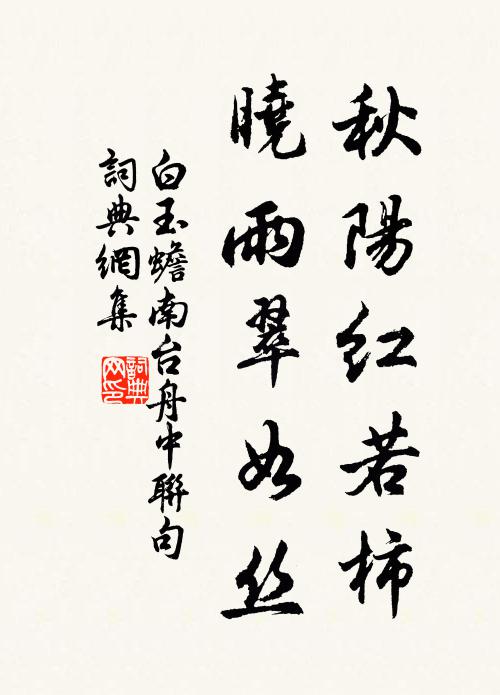 秋陽红若柿
曉雨翠如丝
白玉蟾南台舟中聯句
詞典網集
詞典
网印